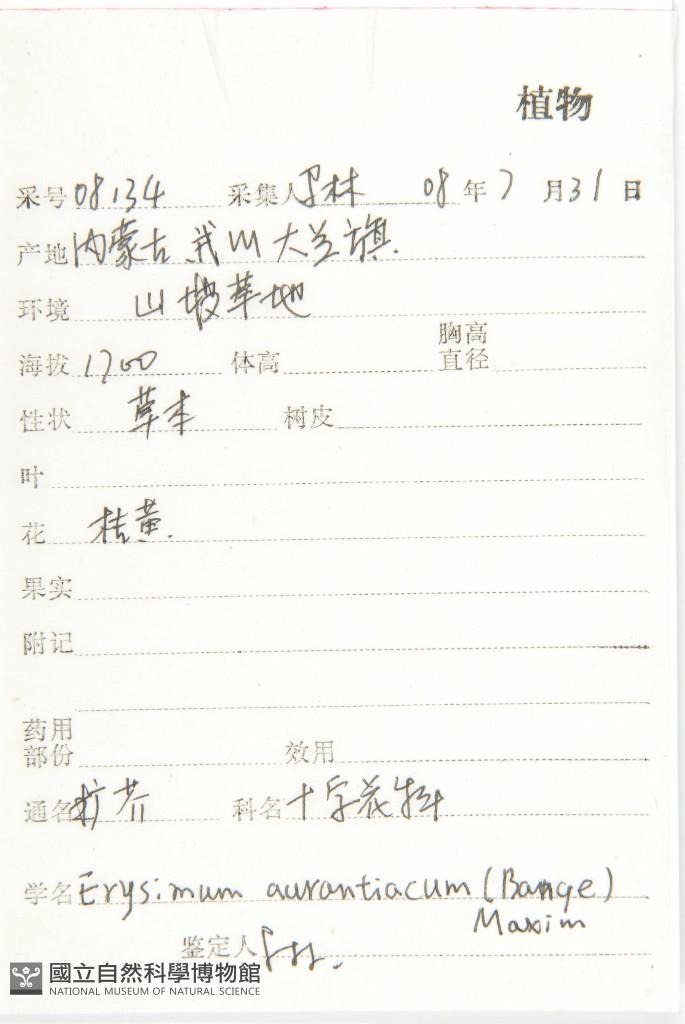 植物
采号 08134 采集人 林 08 年 7 月 31 日
产地 内蒙古 大 旗
环境 山坡草地
海拔 1700 体高 胸高直径
性状 草本 树皮
叶
花 桔黄.
果实
附记
药用部份 效用
通名 芥 科名 十字花科
学名 Erysimum aurantiacum (Bange)
Maxim
鉴定人
國立自然科學博物館
NATIONAL MUSEUM OF NATURAL SCIENCE